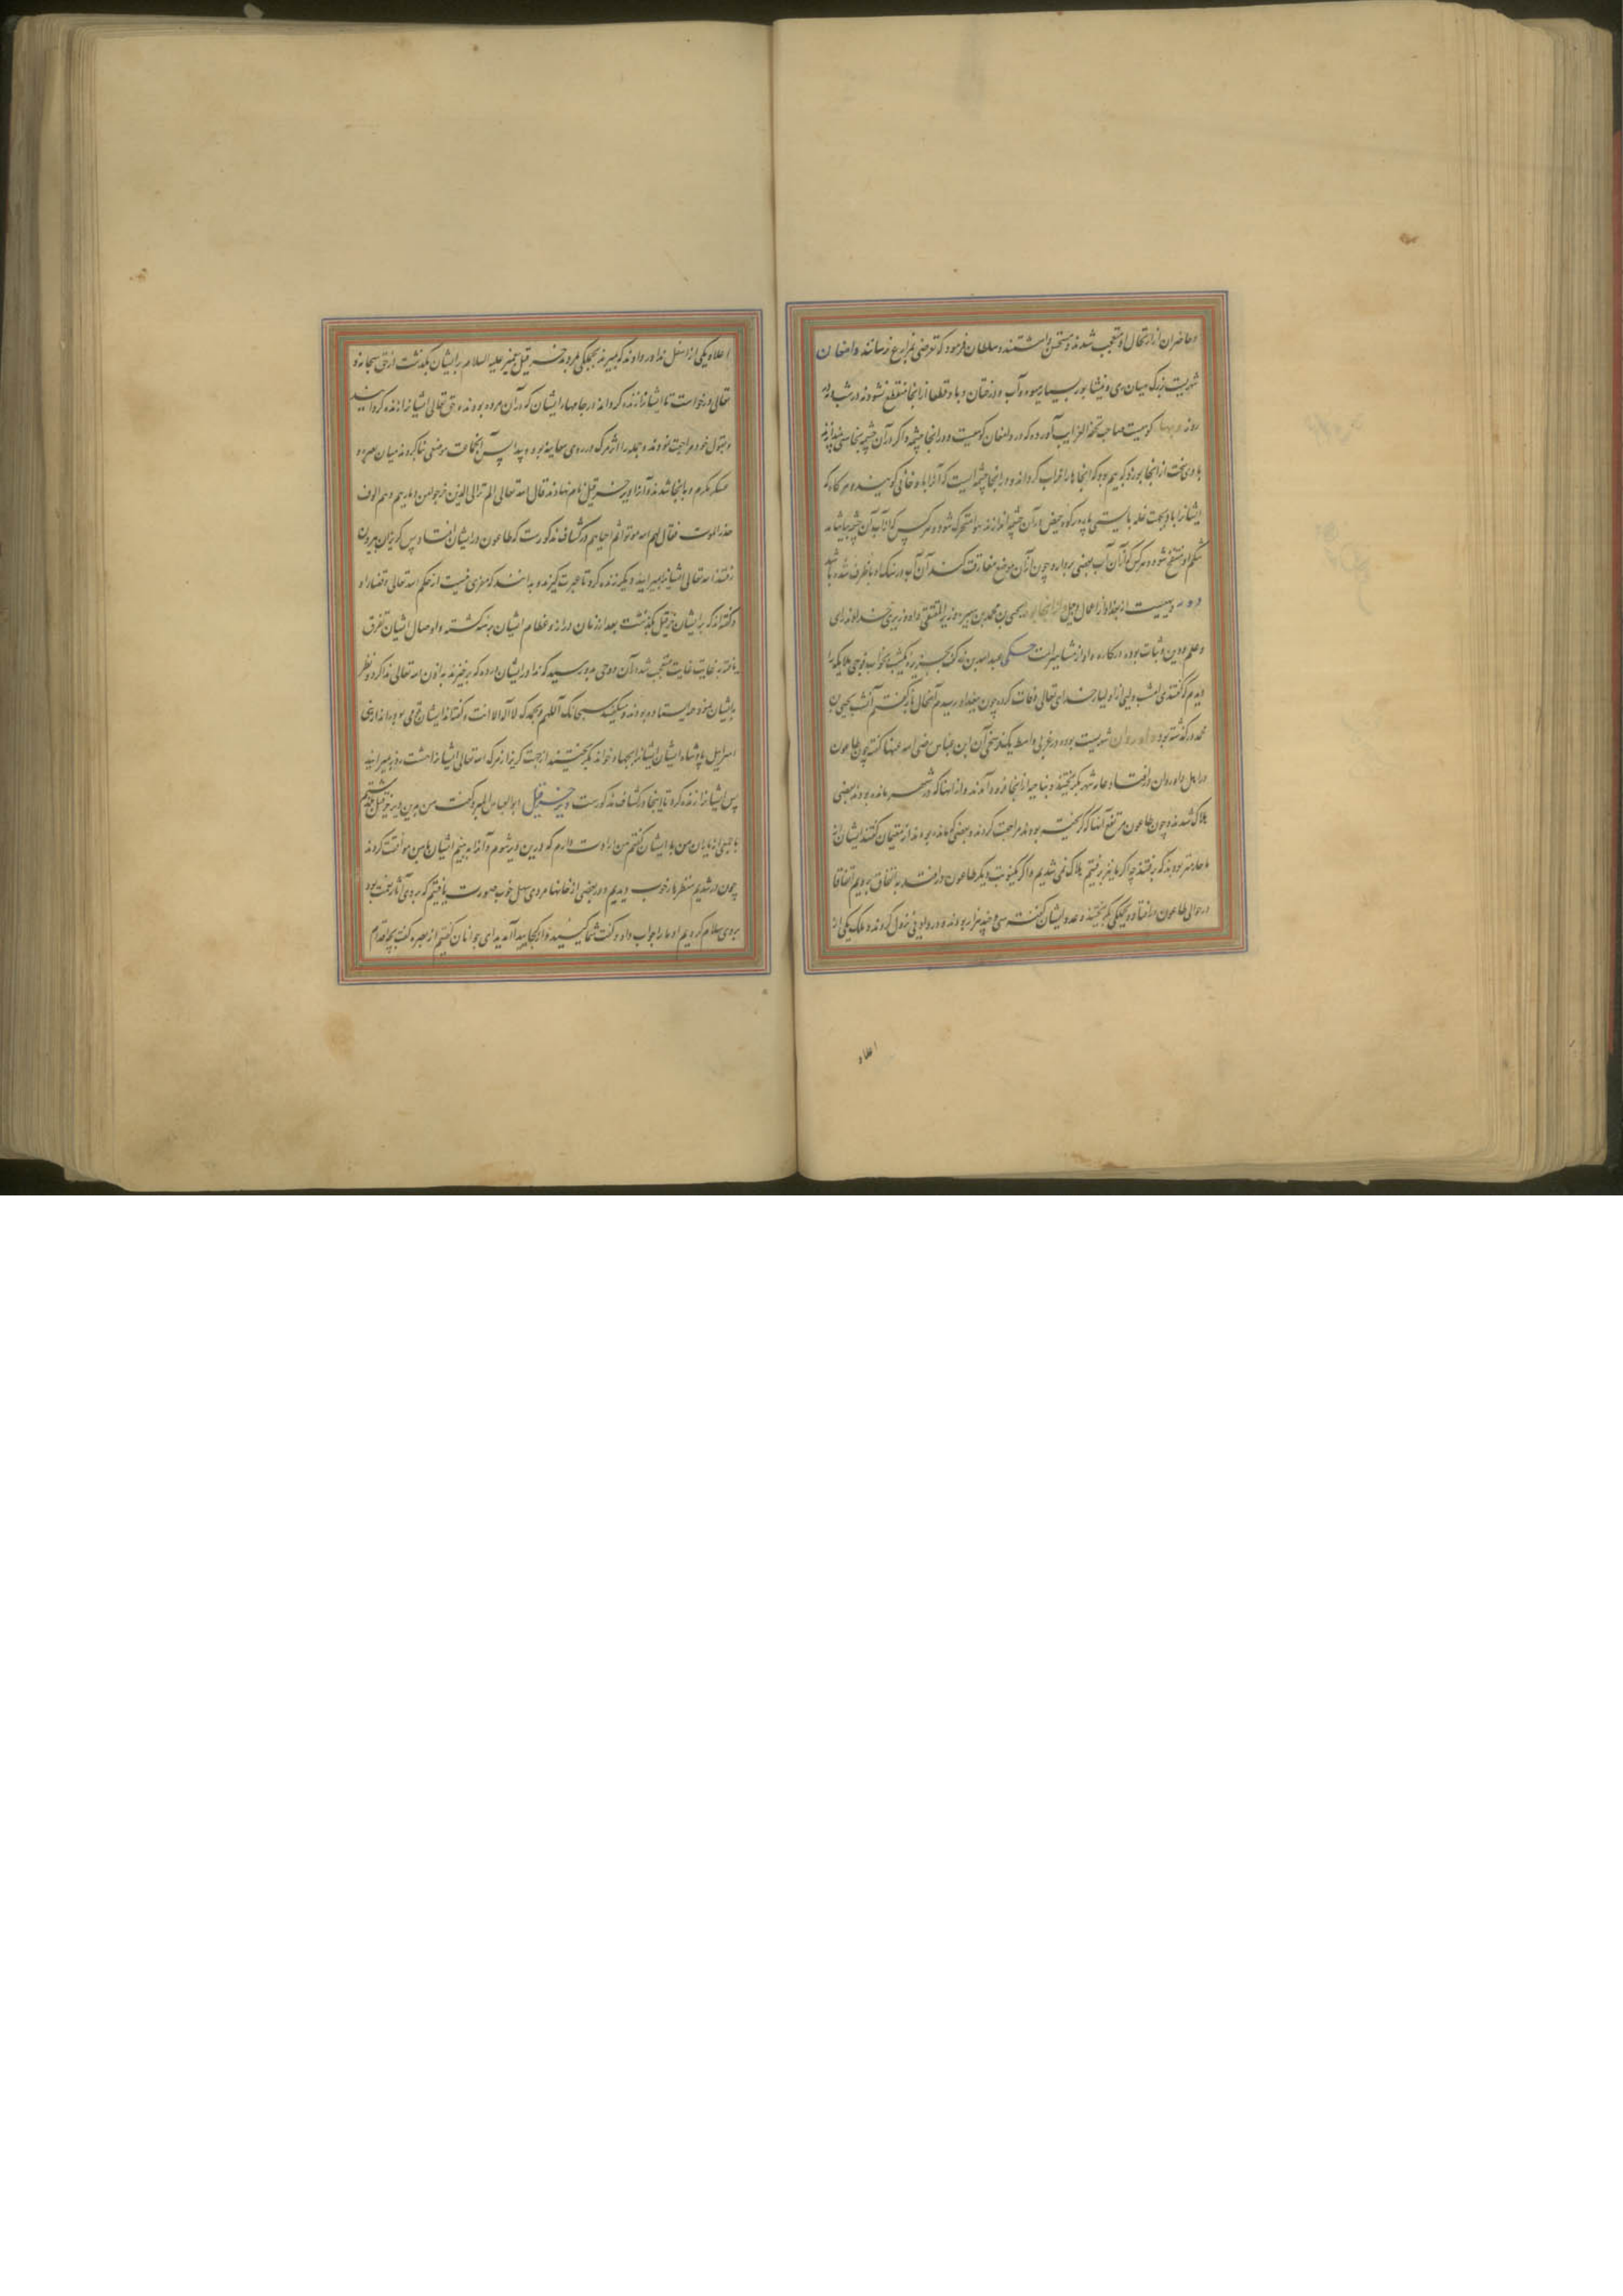 وحاضران از ارتجال او متعجب شدند و مستحسن داشتند و سلطان فرمود که تعرضی بمزارع نرسانند دامغان
شهریست بزرک میان ری و نیشابور بسیار میوه و آب و درختان و باد قطعا از انجا منقطع نشود نه در شب و نه در
روز کوهیست صاحب تحفة الغرایب آورده که در دامغان کوهیست و در انجا چشمه اکر در آن چشمه نجاستی اندازند
بادی سخت از انجا بوزد که بیم بود که انجاها را خراب کرداند و در انجا چشمه ایست که آنرا باد خانی کویند و هر کاه که
ایشانرا باد بجهت غله بایستی پارۀ رکوی حیض در آن چشمه اندازند هوا متحرک شود و هر کس که از آب آن چشمه بیاشامد
شکم او منتفخ شود و هر کس که از آن آب بعضی بردارد چون از آن موضع مفارقت کند آن آب سنک
دور دیهیست از بغداد از اعمال دجیل از انجا بود یحیی بن محمد بن هبیره وزیر المقتفی
و علم و دین و ثبات بوده در کارها و او از مشاهیر است حکی عبدالله بن
دیدم که کفتندی امشب ولیی از اولیاء خدای تعالی وفات کرد چون ببغداد رسیدم آنحال باز کفتم آنشب یحیی بن
محمد درکذشته بود داوردان شهریست بوده در غربی واسط بیک فرسخی آن ابن عباس رضی الله عنهما کفته چون طاعون
در اهل داوردان درافتاد عامه شهر بکریختند و بناحیه از انجا فرود آمدند و از انها که در شهر مانده بودند بعضی
هلاک شدند و چون طاعون مرتفع آنها که کریخته بودند مراجعت کردند و بعضی که مانده بودند از مقیمان کفتند ایشان از
ما حازمتر بودند که برفتند چه اکر ما نیز برفتیم هلاک نمی شدیم و اکر یکنوبت دیکر طاعون درافتد باتفاق برویم اتفاقا
در حوالی طاعون درافتاد و بجملکی بکریختند و عدد ایشان کفته سی و چند هزار بودند و در وادیی نزول کردند و ملک یکی از
اعلاء
اعلاء و یکی از اسفل ندا در داوند که بمیرید بجملکی بمردند حزقیل پیغمبر علیه السلام بر ایشان بکذشت از حق سبحانه و
تعالی درخواست تا ایشانرا زنده کرداند در جامهاء ایشان که در آن مرده بودند حق تعالی ایشانرا زنده کردانید
و بقوم خود مراجعت نمودند و جمله را اثر مرک در روی معاینه بود و پیدا پس آن جماعت موضعی بنا کردند میان بصره و
عسکر مکرم و بانجا شدند و آنرا دیر حزقیل نام نهادند قال الله تعالی الم تر الی الذین خرجوا من دیارهم و هم الوف
حذر الموت فقال لهم الله موتوا ثم احیاهم در کشاف مذکورست که طاعون در ایشان افتاد و پس کریزان بیرون
رفتند الله تعالی ایشانرا بمیرانید و دیکر زنده کرد تا عبرت کیرند و بدانند که مفری نیست از حکم الله تعالی و قضاء او
و کفته اند که بر ایشان حزقیل بکذشت بعد از زمان دراز و عظام ایشان برهنه کشته و اوصال ایشان تفرق
یافته بغایت متعجب شد از آن وحی بدو رسید که ندا در ایشان ده که برخیزند باذن الله تعالی ندا کرد و نظر
بایشان نمود همه ایستاده بودند و میکفتند سبحانک اللهم و بحمدک لا اله الا انت و کفته اند ایشان قومی بوده اند از بنی
اسرائیل پادشاه ایشان ایشانرا بجهاد خواند بکریختند از جهت کریز از مرک الله تعالی ایشانرا هشت روز بمیرانید
پس ایشانرا زنده کرد تا اینجا در کشاف مذکورست دیر حزقیل ابوالعباس المبرد کفت من بدین دیر حزقیل بکذشتم
با جمعی از یاران من با ایشان کفتم من دوست دارم که درین دیر شوم و آنرا ببینم ایشان با من موافقت کردند
چون در شدیم منظرها خوب دیدیم و در بعضی از خانها مردی سهل خوب صورت یافتیم که بروی آثار نعمت بود
بروی سلام کردیم او ما را جواب داد و کفت شما کیستید و از کجا آمدید ای جوانان کفتیم از بصره کفت بچه اقدام